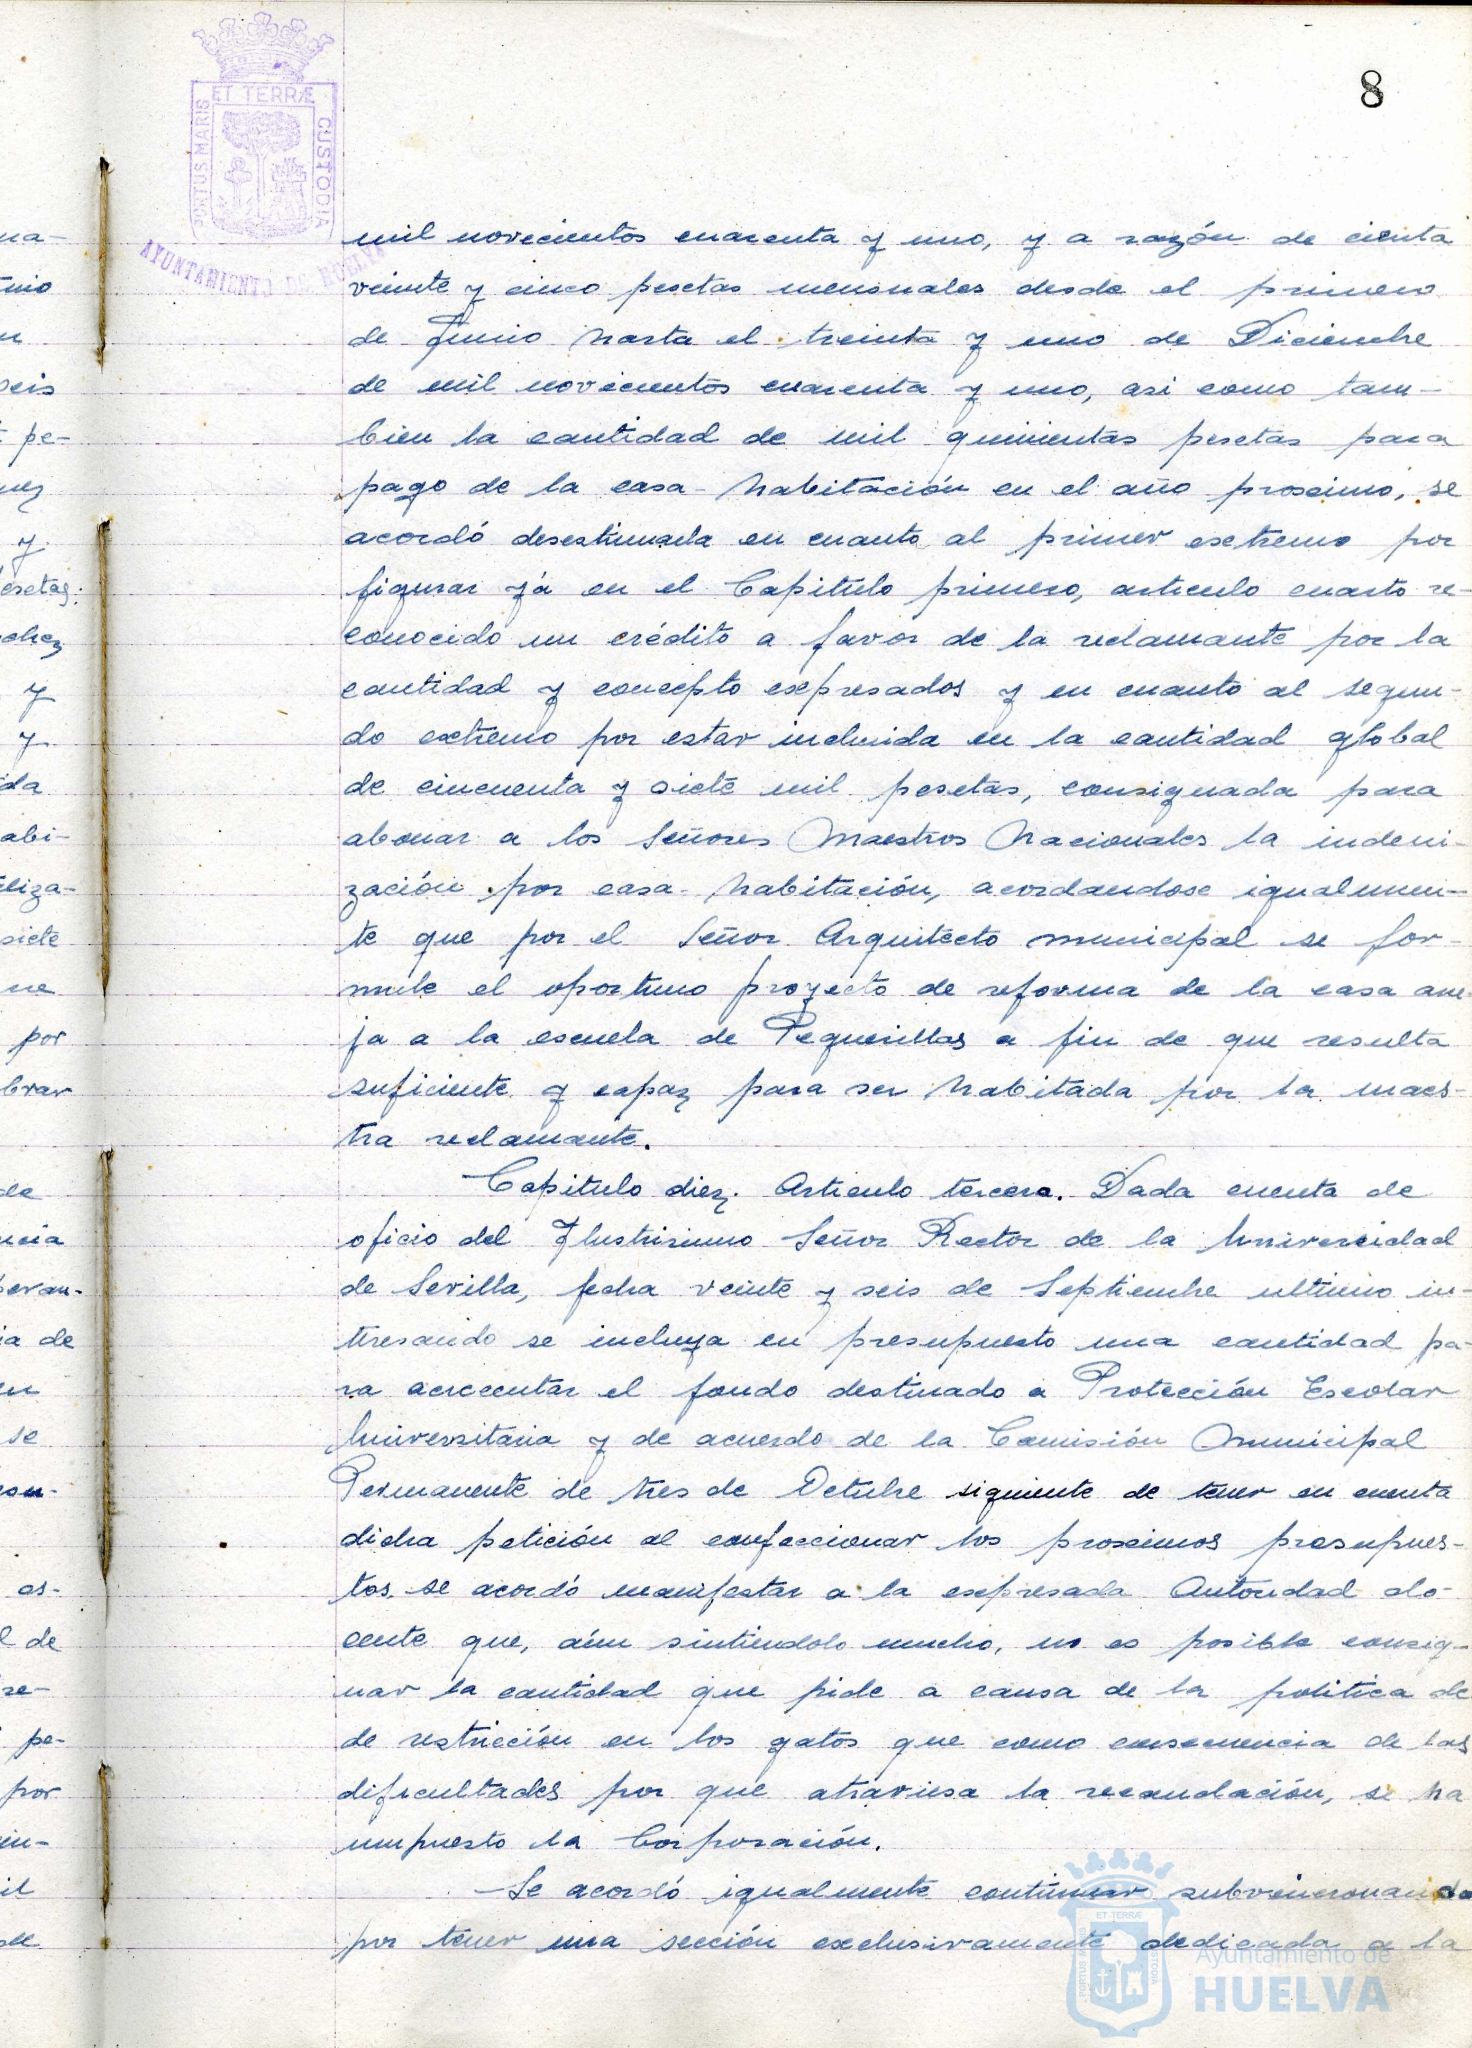 8
ET TERRÆ
PORTUS MARIS
CUSTODIA
AYUNTAMIENTO DE HUELVA
mil novecientos cuarenta y uno, y a razón de cienta
veinte y cinco pesetas mensuales desde el primero
de Junio hasta el treinta y uno de Diciembre
de mil novecientos cuarenta y uno, asi como tam-
bien la cantidad de mil quinientas pesetas para
pago de la casa-habitación en el año proximo, se
acordó desestimarla en cuanto al primer extremo por
figurar yá en el Capitulo primero, articulo cuarto re-
conocido un crédito a favor de la reclamante por la
cantidad y concepto expresados y en cuanto al segun-
do extremo por estar incluida en la cantidad global
de cincuenta y siete mil pesetas, consignada para
abonar a los Señores Maestros Nacionales la indeni-
zación por casa-habitación, acordandose igualmen-
te que por el Señor Arquitecto municipal se for-
mule el oportuno proyecto de reforma de la casa ane-
ja a la escuela de Pequeñillas a fin de que resulta
suficiente y capaz para ser habitada por la maes-
tra reclamante.
Capitulo diez. Articulo tercero. Dada cuenta de
oficio del Ilustrisimo Señor Rector de la Universidad
de Sevilla, fecha veinte y seis de Septiembre ultimo in-
teresando se incluya en presupuesto una cantidad pa-
ra acrecentar el fondo destinado a Protección Escolar
Universitaria y de acuerdo de la Comisión Municipal
Permanente de tres de Octubre siguiente de tener en cuenta
dicha petición al confeccionar los proximos presupues-
tos, se acordó manifestar a la expresada Autoridad do-
cente que, aún sintiendolo mucho, no es posible consig-
nar la cantidad que pide a causa de la politica de
de restricción en los gatos que como consecuencia de las
dificultades por que atraviesa la recaudación, se ha
impuesto la Corporación.
Se acordó igualmente continuar subvencionando
por tener una sección exclusivamente dedicada a la
Ayuntamiento de
HUELVA